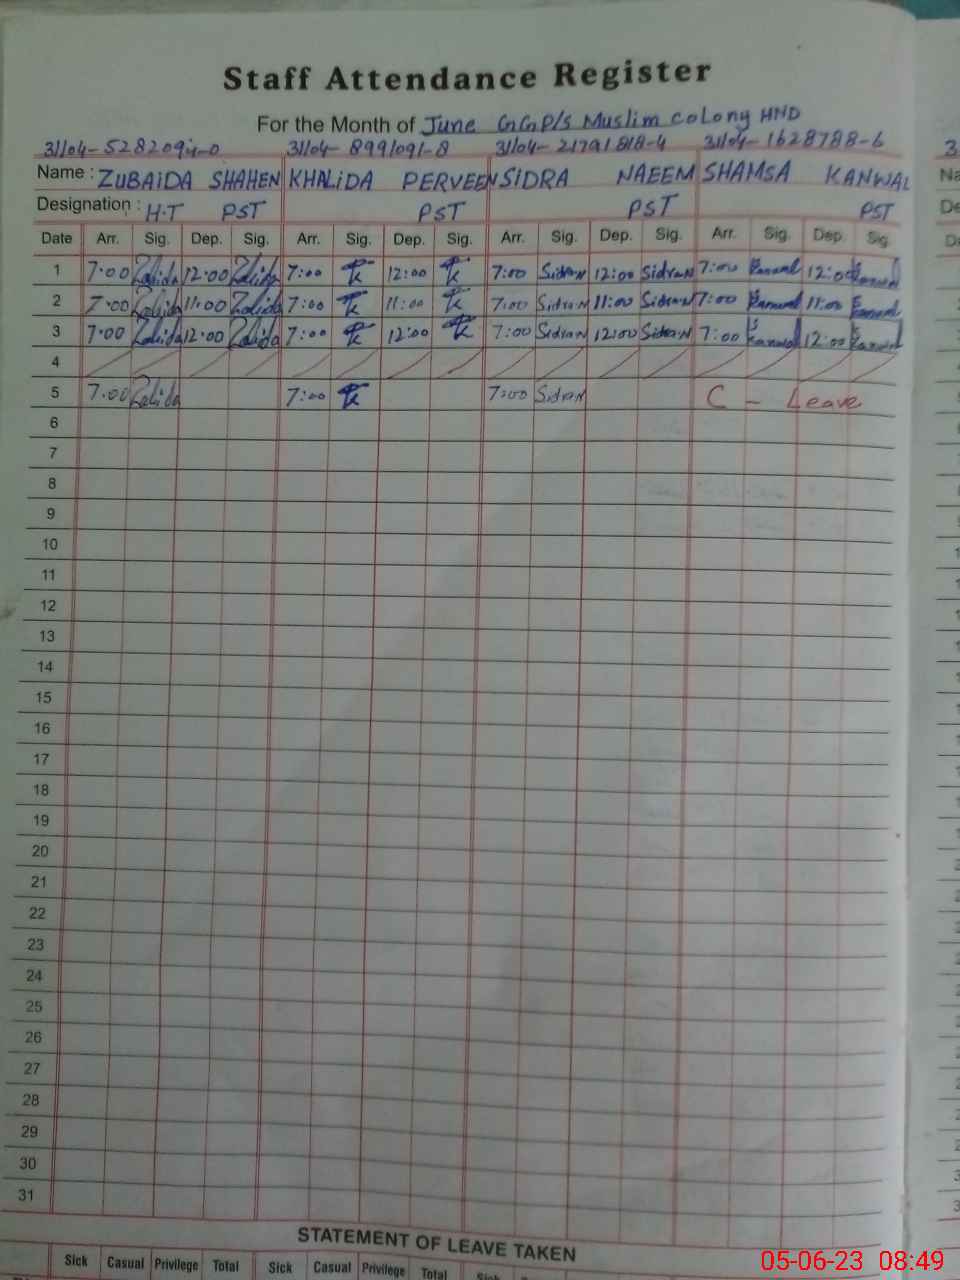 Staff Attendance Register
For the Month of June GGP/S Muslim colony HND
31104-5282094-0 31104-8991091-8 31104-21791818-4 31104-1628788-6
Name : ZUBAIDA SHAHEN KHALIDA PERVEEN SIDRA NAEEM SHAMSA KANWAL
Designation : H.T PST PST PST PST
Date Arr. Sig. Dep. Sig. Arr. Sig. Dep. Sig. Arr. Sig. Dep. Sig. Arr. Sig. Dep. Sig.
1 7.00 12.00 7:00 12:00 7:00 Sidran 12:00 Sidran 7:00 Kanwal 12:00 Kanwal
2 7.00 11:00 7:00 11:00 7:00 Sidran 11:00 Sidran 7:00 Kanwal 11:00 Kanwal
3 7.00 12.00 7:00 12:00 7:00 Sidran 12:00 Sidran 7:00 Kanwal 12:00 Kanwal
4
5 7.00 7:00 7:00 Sidran C - Leave
6
7
8
9
10
11
12
13
14
15
16
17
18
19
20
21
22
23
24
25
26
27
28
29
30
31
STATEMENT OF LEAVE TAKEN
Sick Casual Privilege Total Sick Casual Privilege Total Sick
05-06-23 08:49